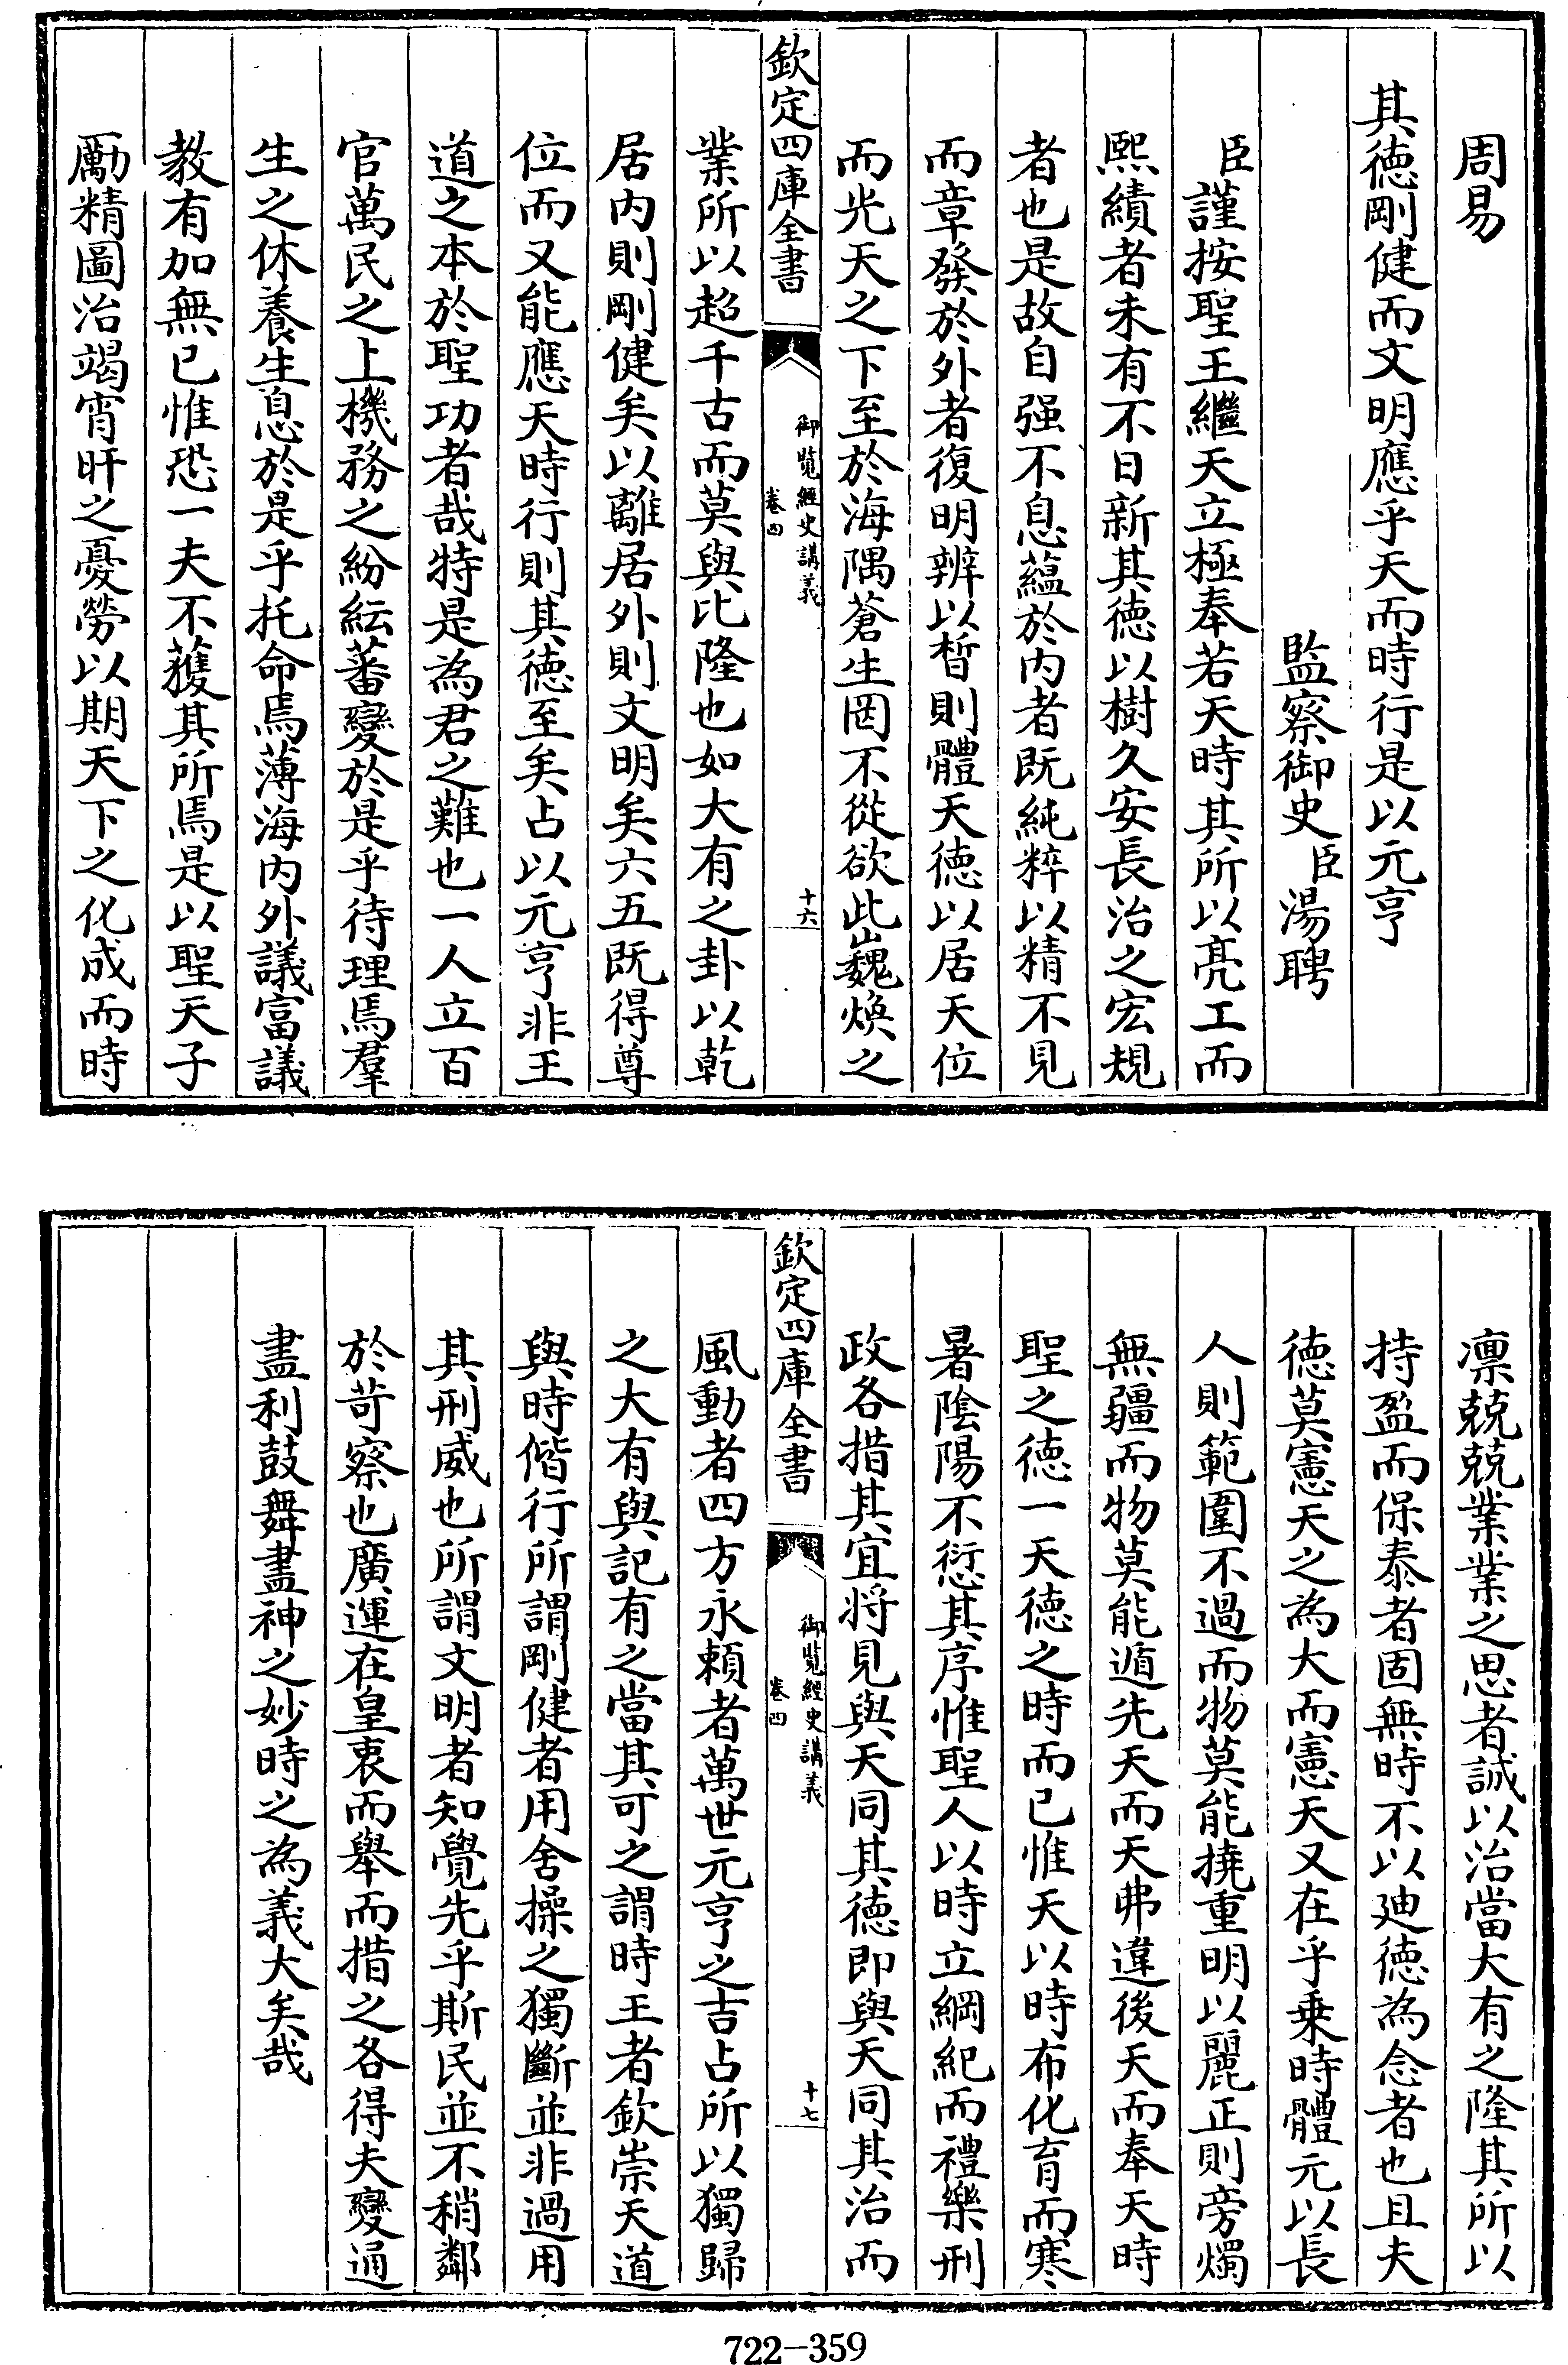 周易
其德剛健而文明應乎天而時行是以元亨
監察御史臣湯聘
臣謹按聖王繼天立極奉若天時其所以亮工而
熙績者未有不日新其德以樹久安長治之宏規
者也是故自强不息蘊於内者既純粹以精不見
而章發於外者復明辨以晳則體天德以居天位
而光天之下至於海隅蒼生罔不從欲此巍煥之
欽定四庫全書
御覽經史講義
卷四
十六
業所以超千古而莫與比隆也如大有之卦以乾
居内則剛健矣以離居外則文明矣六五既得尊
位而又能應天時行則其德至矣占以元亨非王
道之本於聖功者哉特是為君之難也一人立百
官萬民之上機務之紛紜蕃變於是乎待理焉羣
生之休養生息於是乎托命焉薄海内外議富議
教有加無已惟恐一夫不獲其所焉是以聖天子
勵精圖治竭宵旰之憂勞以期天下之化成而時
凛兢兢業業之思者誠以治當大有之隆其所以
持盈而保泰者固無時不以廸德為念者也且夫
德莫憲天之為大而憲天又在乎乗時體元以長
人則範圍不過而物莫能撓重明以麗正則旁燭
無疆而物莫能遁先天而天弗違後天而奉天時
聖之德一天德之時而已惟天以時布化育而寒
暑陰陽不愆其序惟聖人以時立綱紀而禮樂刑
政各措其宜将見與天同其德即與天同其治而
欽定四庫全書
御覽經史講義
卷四
十七
風動者四方永頼者萬世元亨之吉占所以獨歸
之大有與記有之當其可之謂時王者欽崇天道
與時偕行所謂剛健者用舍操之獨斷並非過用
其刑威也所謂文明者知覺先乎斯民並不稍鄰
於苛察也廣運在皇衷而舉而措之各得夫變通
盡利鼓舞盡神之妙時之為義大矣哉
722-359